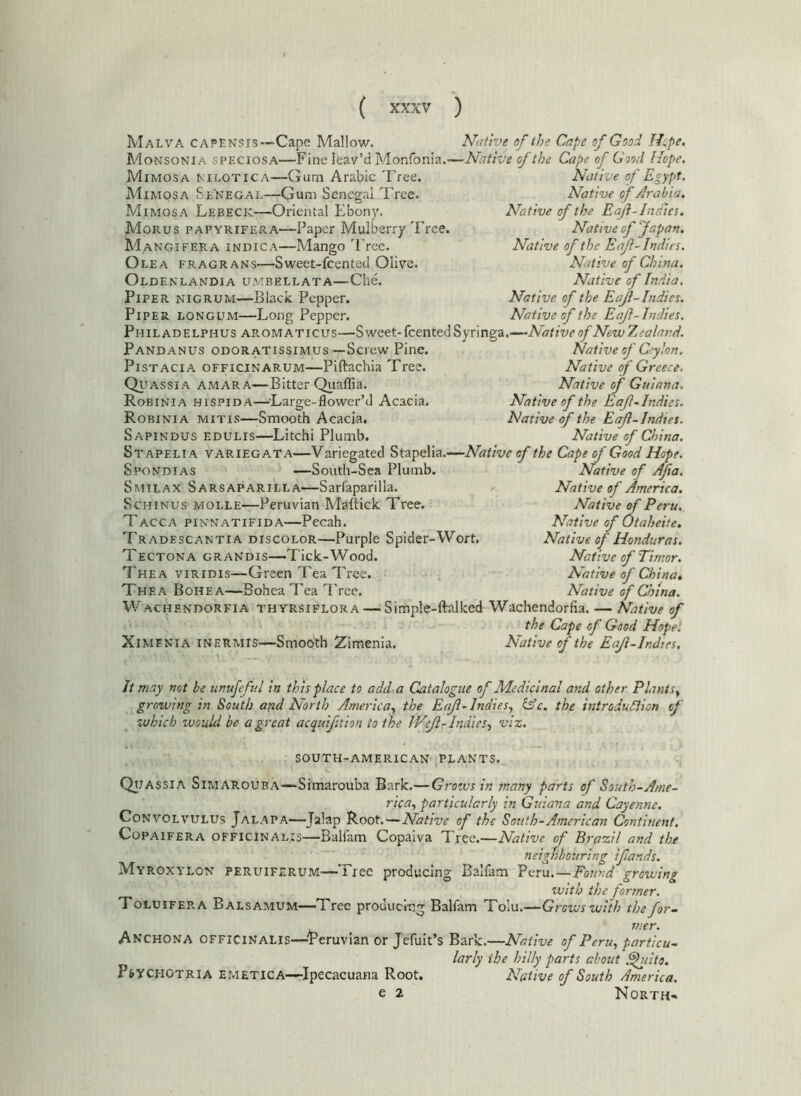 ( xxxv )
Malva capensis—Cape Mallow. Native of the Cape of Good Hope.
Monsonia speciosa—Fine leav’d Monſonia.—Native of the Cape of Good Hope.
Mimosa nilotica—Gum Arabic Tree. Native of Egypt.
Mimosa Senegal—Gum Senegal Tree. Native of Arabia.
Mimosa Lebeck—Oriental Ebony. Native of the Eaſt-Indies.
Morus papyrifera—Paper Mulberry Tree. Native of Japan.
Mangifera indica—Mango Tree. Native of the Eaſt-Indies.
Olea fragrans—Sweet-ſcented Olive. Native of China.
Oldenlandia umbellata—Ché. Native of India.
Piper nigrum—Black Pepper. Native of the Eaſt-Indies.
Piper longum—Long Pepper. Native of the Eaſt-Indies.
Philadelphus aromaticus—Sweet-ſcented Syringa.—Native of New Zealand.
Pandanus odoratissimus—Screw Pine. Native of Ceylon.
Pistacia officinarum—Piſtachia Tree. Native of Greece.
Quassia amara—Bitter Quaſſia. Native of Guiana.
Robinia hispida—Large-flower’d Acacia. Native of the Eaſt-Indies.
Robinia mitis—Smooth Acacia. Native of the Eaſt-Indies.
Sapindus edulis—Litchi Plumb. Native of China.
Stapelia variegata—Variegated Stapelia.—Native of the Cape of Good Hope.
Spondias —South-Sea Plumb. Native of Aſia.
Smilax Sarsaparilla—Sarſaparilla. Native of America.
Schinus molle—Peruvian Maſtick Tree. Native of Peru.
Tacca pinnatifida—Pecah. Native of Otaheite.
Tradescantia discolor—Purple Spider-Wort. Native of Honduras.
Tectona grandis—Tick-Wood. Native of Timor.
Thea viridis—Green Tea Tree. Native of China.
Thea Bohea—Bohea Tea Tree. Native of China.
Wachendorfia thyrsiflora—Simple-ſtalked Wachendorfia.—Native of
the Cape of Good Hope.
Ximenia inermis—Smooth Zimenia. Native of the Eaſt-Indies.
It may not be unuſeful in this place to add a Catalogue of Medicinal and other Plants,
growing in South and North America, the Eaſt-Indies, &c. the introduction of
which would be a great acquiſition to the Weſt-Indies, viz.
SOUTH-AMERICAN PLANTS.
Quassia Simarouba—Simarouba Bark.—Grows in many parts of South-Ame-
rica, particularly in Guiana and Cayenne.
Convolvulus Jalapa—Jalap Root.—Native of the South-American Continent.
Copaifera officinalis—Balſam Copaiva Tree.—Native of Brazil and the
neighbouring iſlands.
Myroxylon peruiferum—Tree producing Balſam Peru.—Found growing
with the former.
Toluifera Balsamum—Tree producing Balſam Tolu.—Grows with the for-
mer.
Anchona officinalis—Peruvian or Jeſuit’s Bark.—Native of Peru, particu-
larly the hilly parts about Quito.
Psychotria emetica—Ipecacuana Root. Native of South America.
e 2 North-